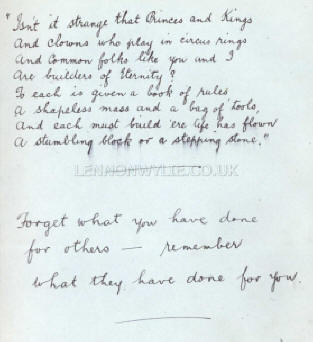 "Isn't it strange that Princes and Kings
And clowns who play in circus rings
And Common folks like you and I
Are builders of Eternity?
To each is given a book of rules
A shapeless mass and a bag of tools,
And each must build 'ere life has flown
A stumbling block or a stepping stone."
LENNONWYLIE.CO.UK
Forget what you have done
for others — remember
what they have done for you.